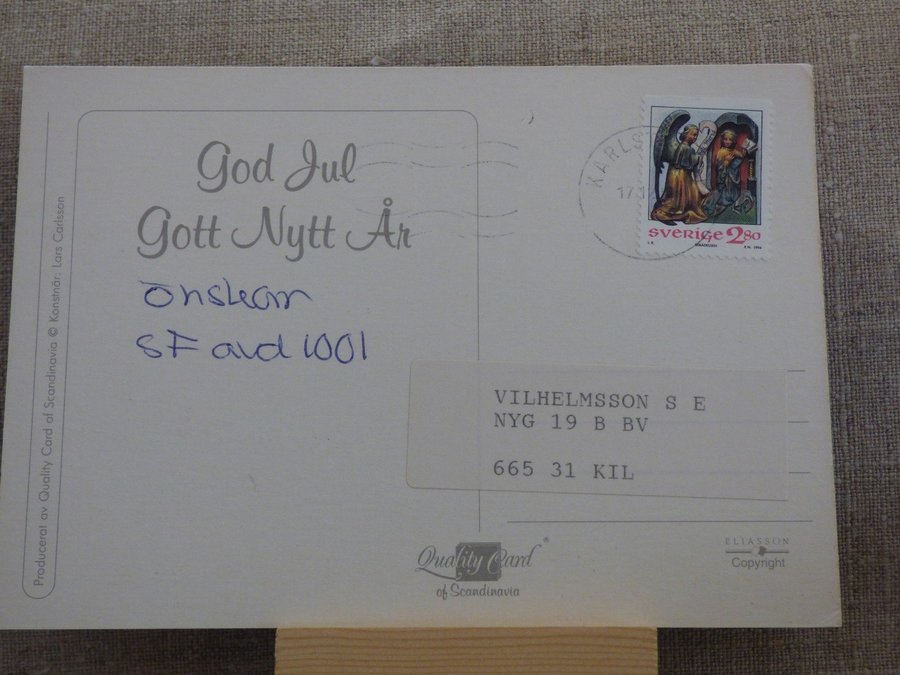 God Jul
Gott Nytt År
Önskar
SF avd 1001
Producerat av Quality Card of Scandinavia © Konstnär: Lars Carlsson
KARL
17
SVERIGE 280
1996
VILHELMSSON S E
NYG 19 B BV
665 31 KIL
Quality Card ®
of Scandinavia
ELIASSON
Copyright